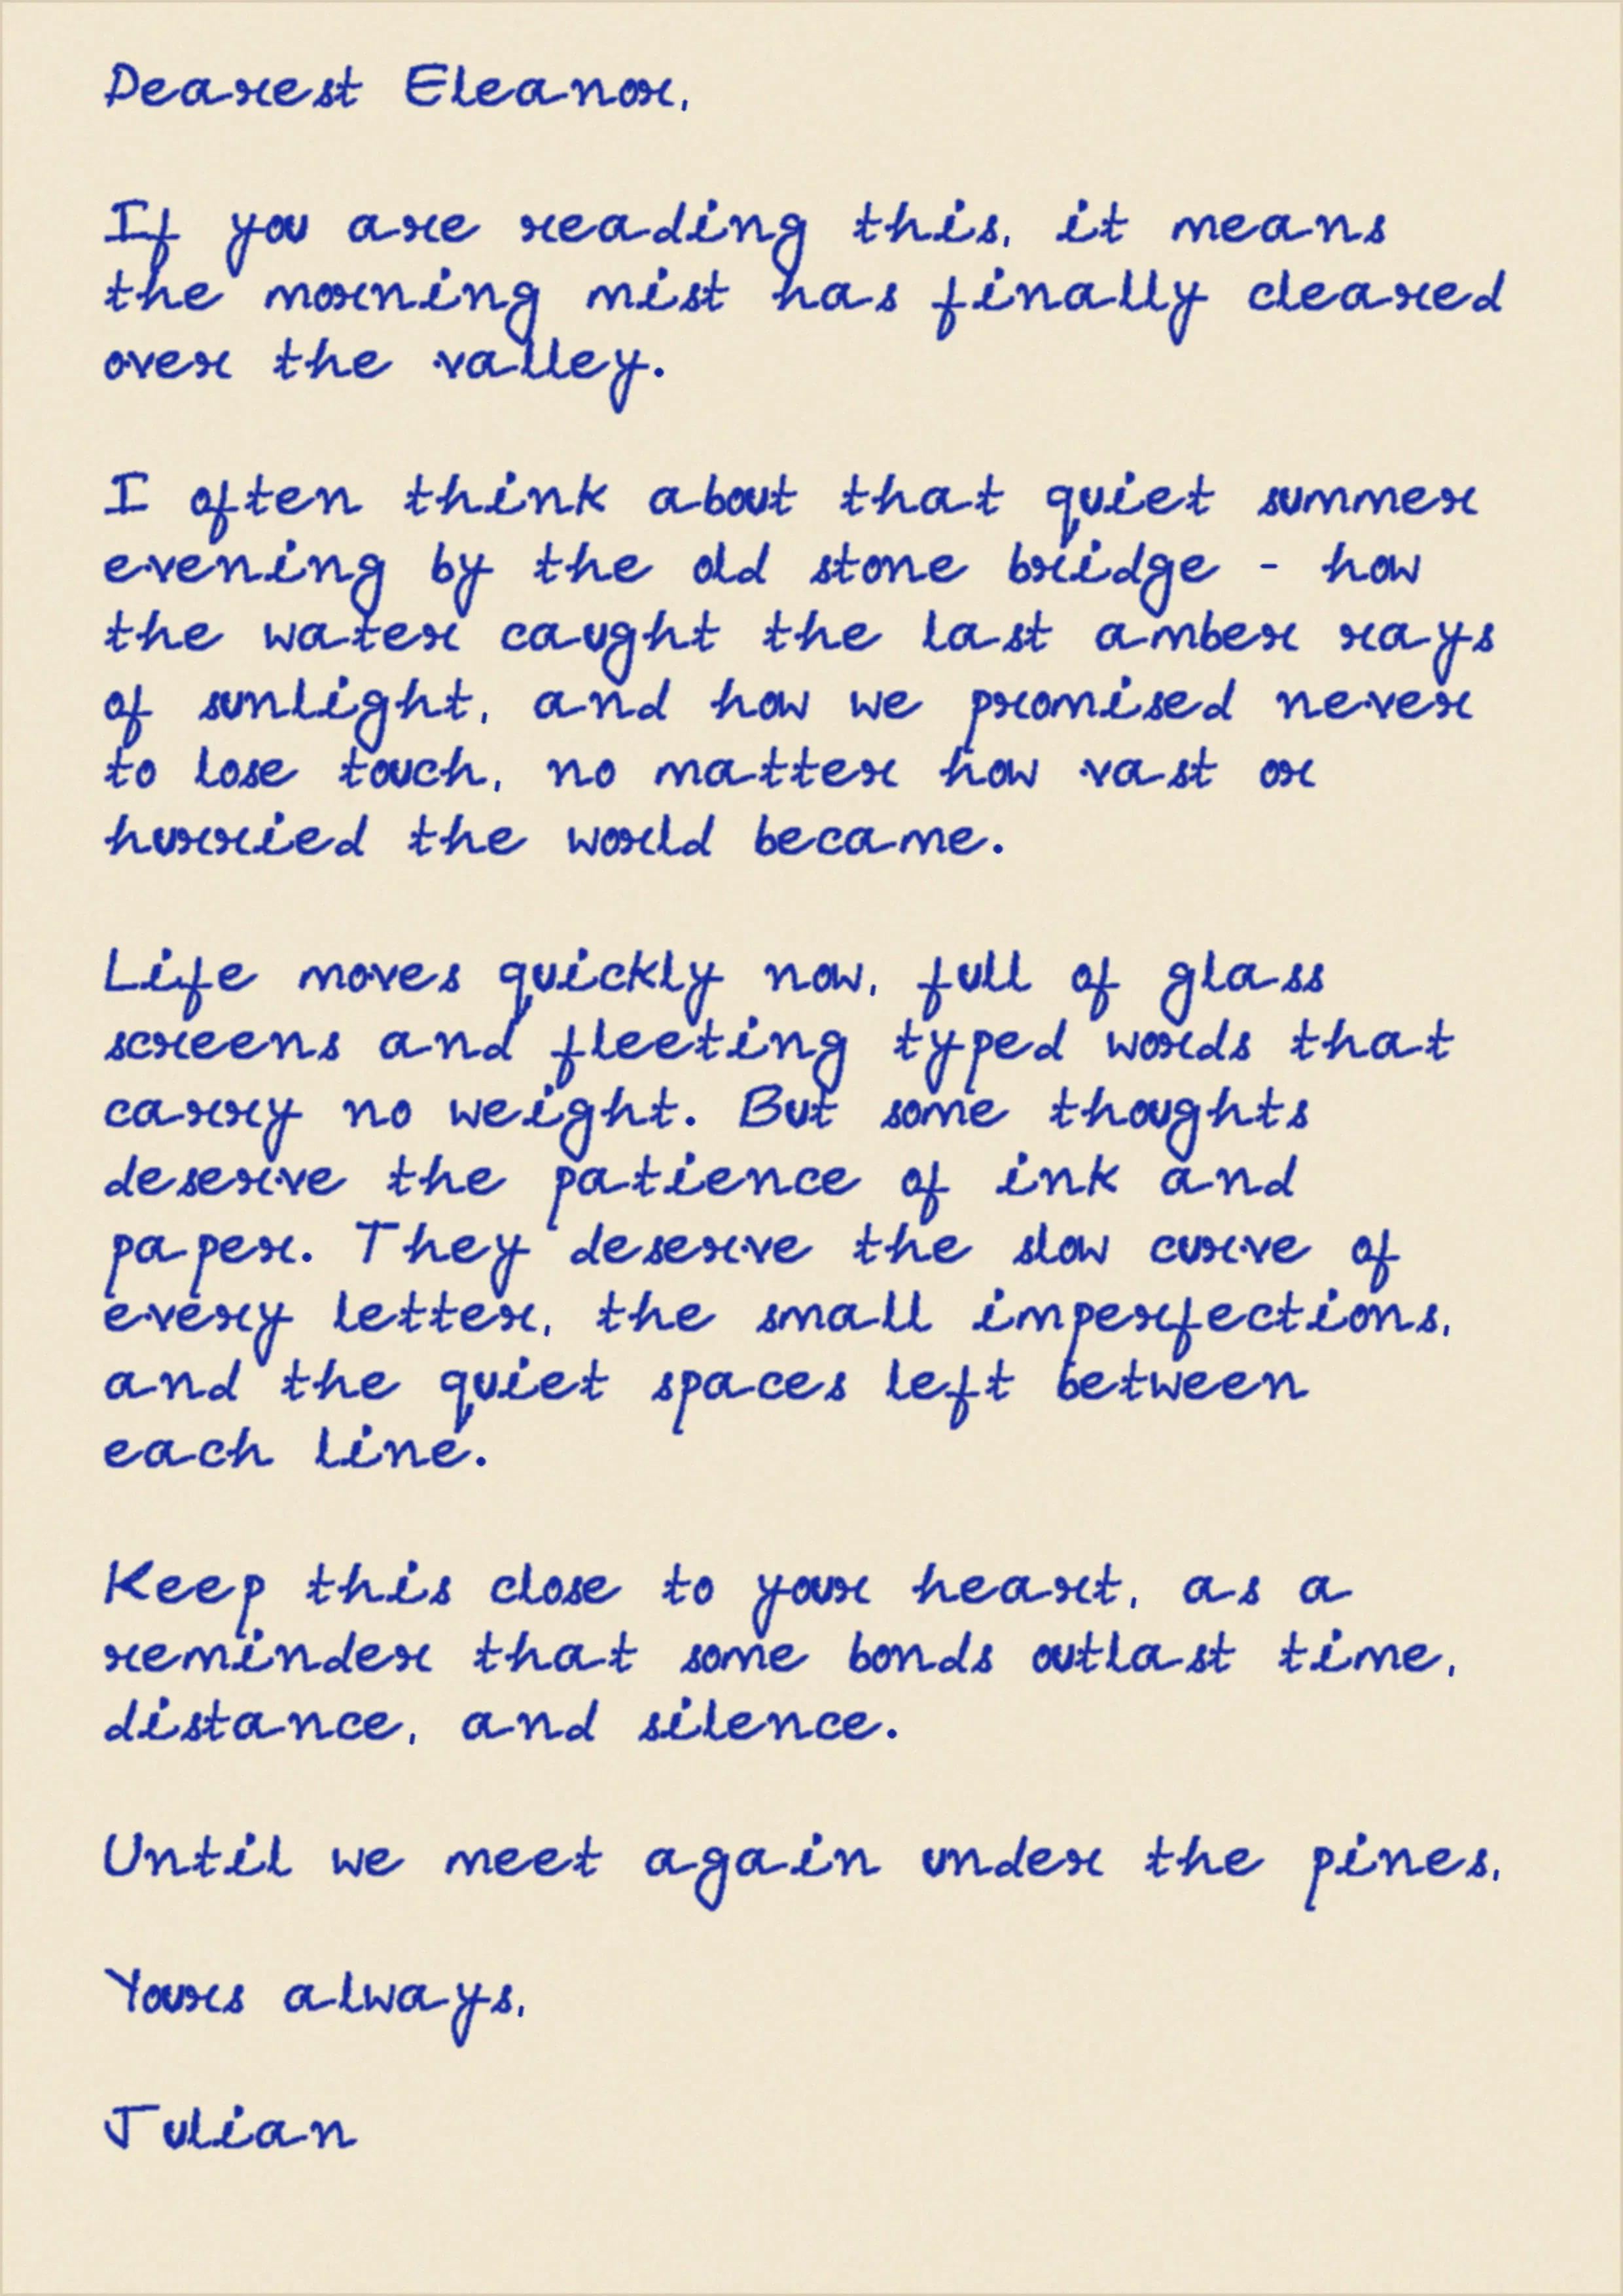 Dearest Eleanor,
If you are reading this, it means
the morning mist has finally cleared
over the valley.
I often think about that quiet summer
evening by the old stone bridge - how
the water caught the last amber rays
of sunlight, and how we promised never
to lose touch, no matter how vast or
hurried the world became.
Life moves quickly now, full of glass
screens and fleeting typed words that
carry no weight. But some thoughts
deserve the patience of ink and
paper. They deserve the slow curve of
every letter, the small imperfections,
and the quiet spaces left between
each line.
Keep this close to your heart, as a
reminder that some bonds outlast time,
distance, and silence.
Until we meet again under the pines,
Yours always,
Julian